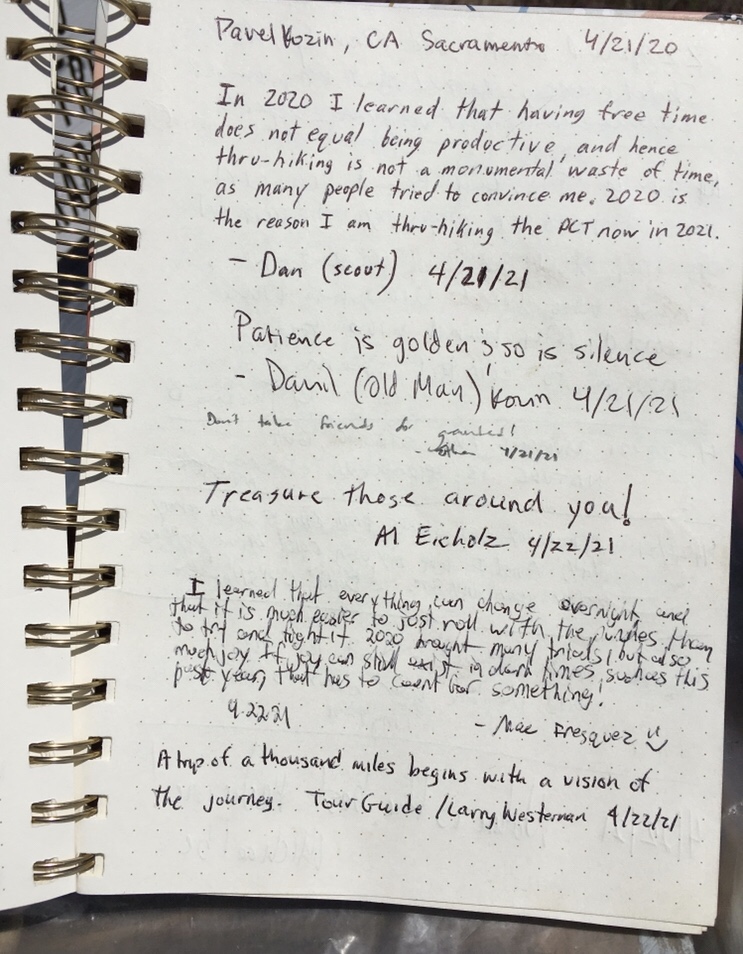 Pavel Kozin, CA Sacramento 4/21/20
In 2020 I learned that having free time
does not equal being productive, and hence
thru-hiking is not a monumental waste of time,
as many people tried to convince me. 2020 is
the reason I am thru-hiking the PCT now in 2021.
- Dan (scout) 4/21/21
Patience is golden, so is silence
- Danil (Old Man) Kozin 4/21/21
Don't take friends for granted!
4/21/21
Treasure those around you!
Al Eicholz 4/22/21
I learned that everything can change overnight and
that it is much easier to just roll with the punches than
to try and fight it. 2020 brought many trials, but also
much joy. If joy can still exist in dark times, such as this
past year, that has to count for something!
4.22.21
- Mae Fresquez
A trip of a thousand miles begins with a vision of
the journey. Tour Guide / Larry Westerman 4/22/21